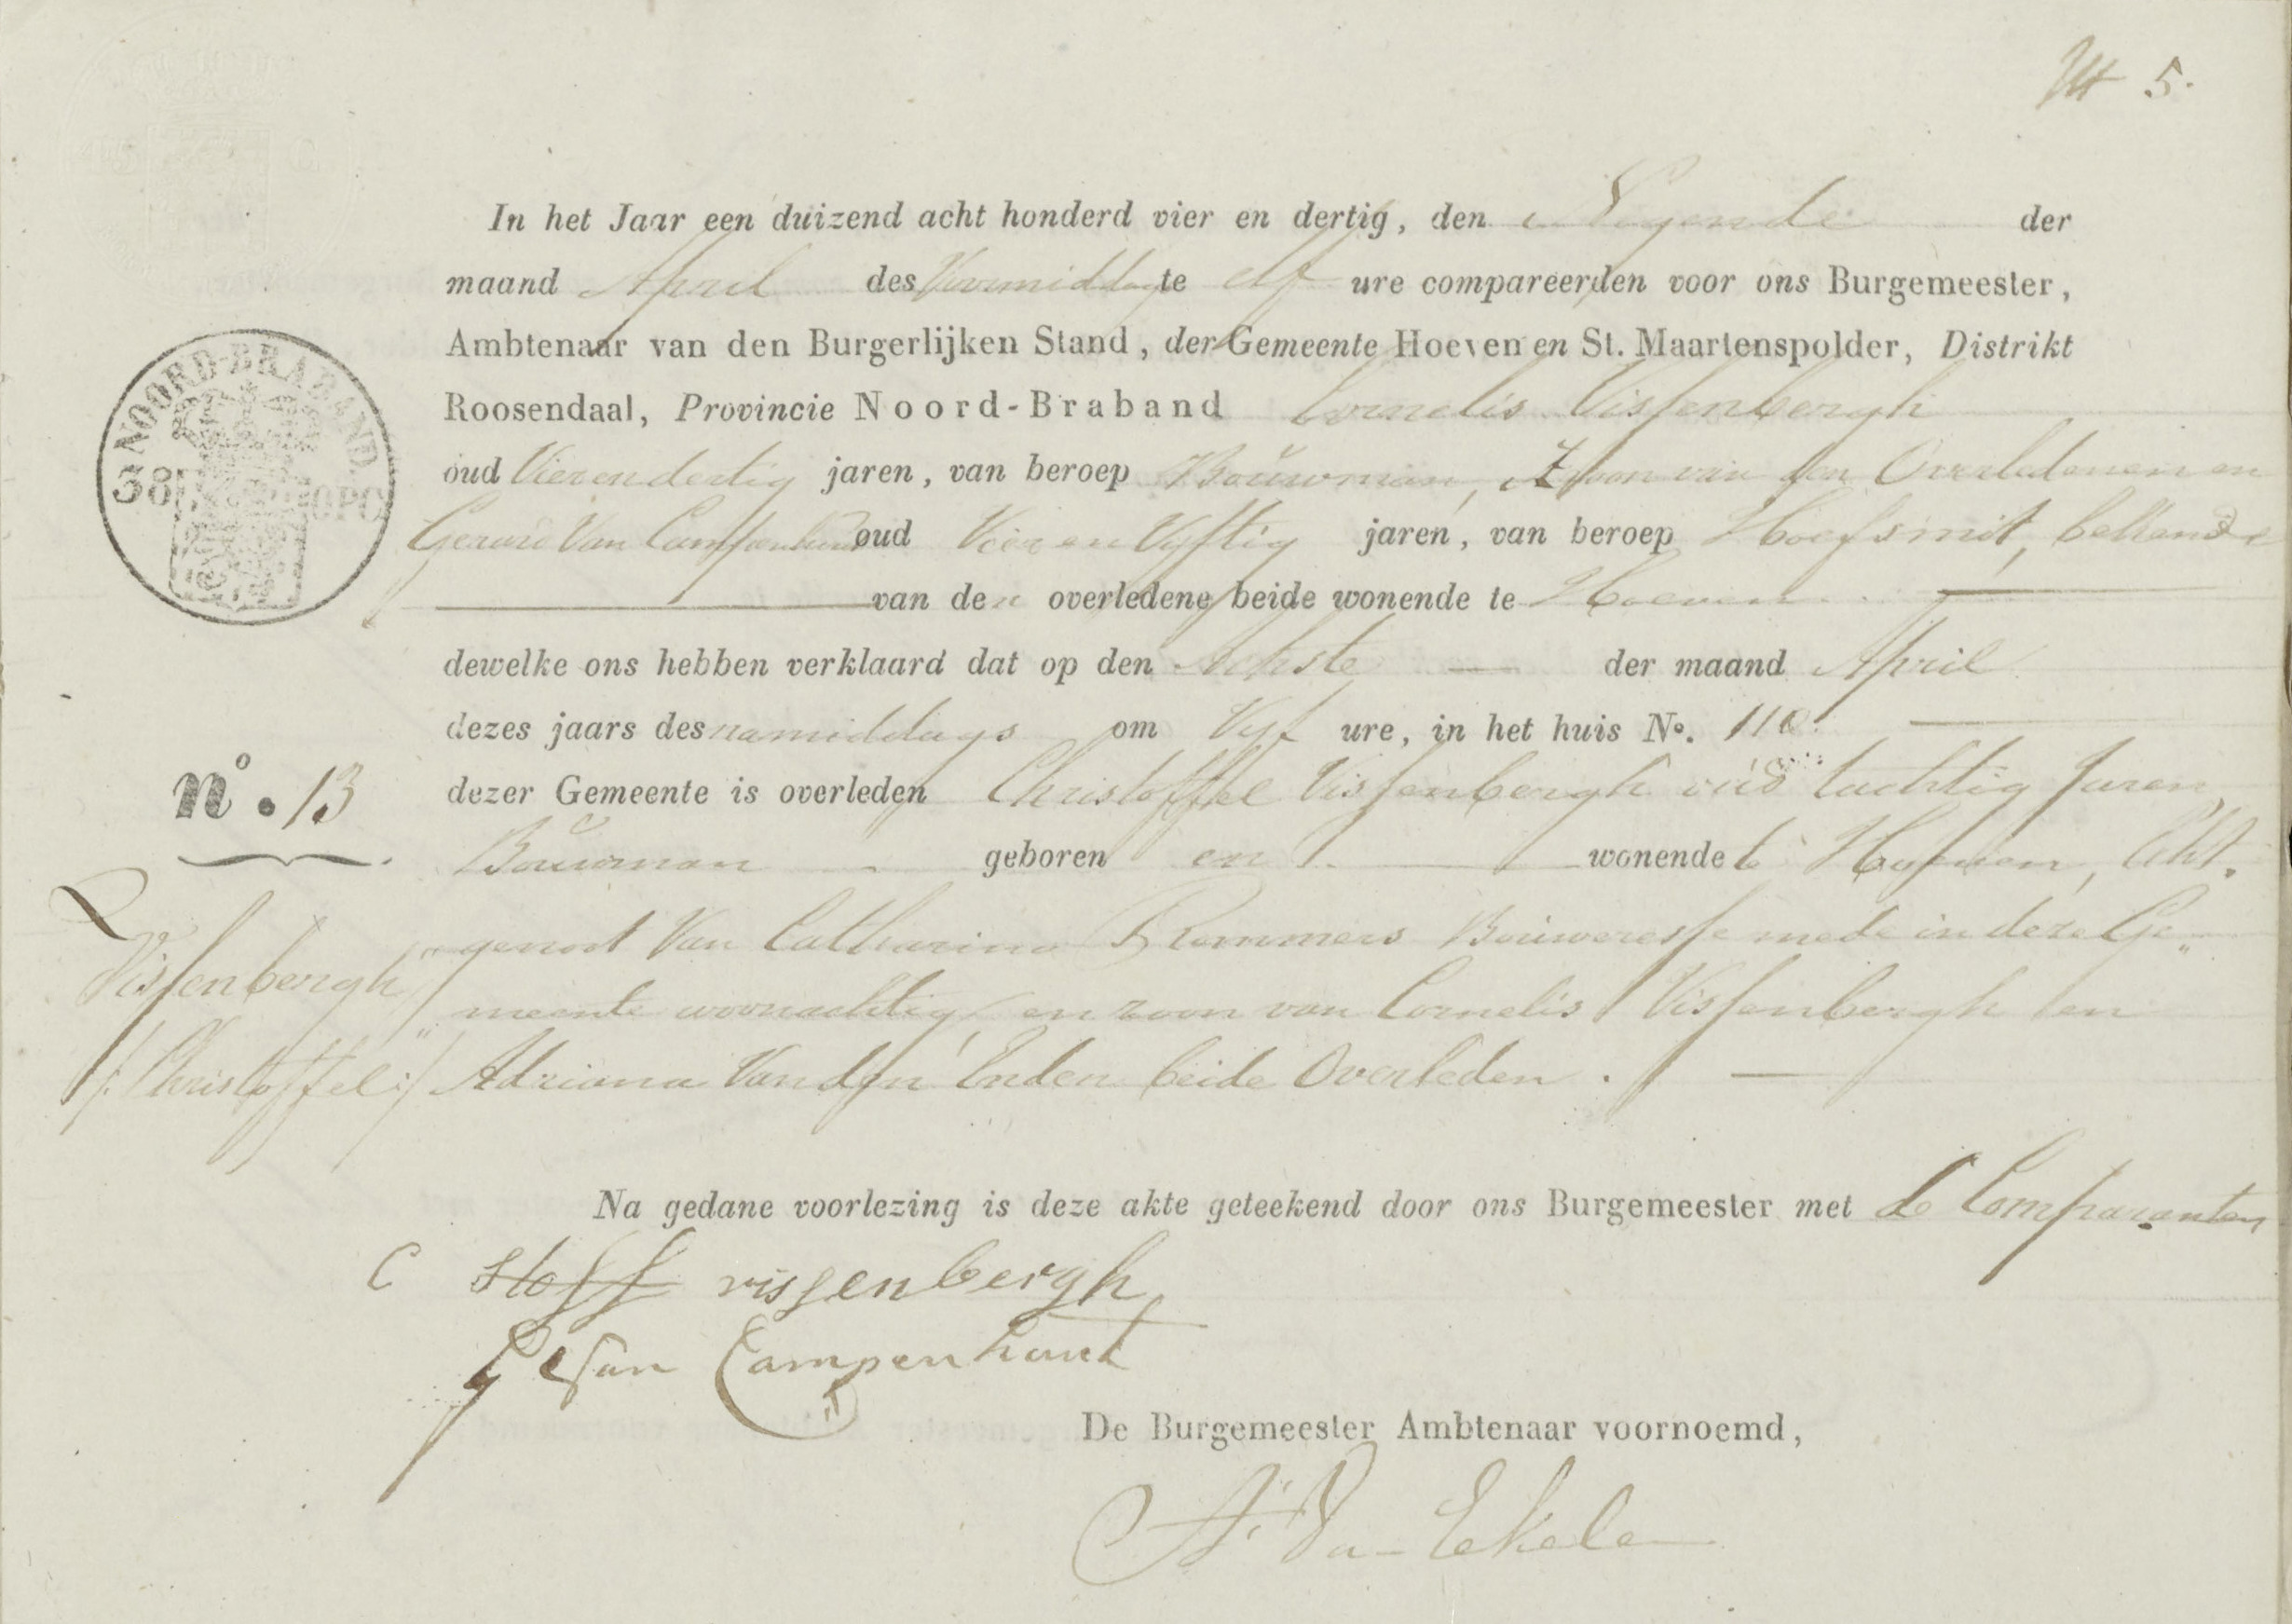 5.
In het Jaar een duizend acht honderd vier en dertig, den Negende der
maand April des Voormiddags te elf ure compareerden voor ons Burgemeester,
Ambtenaar van den Burgerlijken Stand, der Gemeente Hoeven en St. Maartenspolder, Distrikt
Roosendaal, Provincie Noord-Braband Cornelis Vissenbergh
oud Vierendertig jaren, van beroep Bouwman, Zoon van den Overledenen en
Gerard Van Campenhout oud Vier en Vyftig jaren, van beroep Hoefsmit, bekende
van den overledene beide wonende te Hoeven
dewelke ons hebben verklaard dat op den Achste der maand April
dezes jaars des namiddags om Vyf ure, in het huis No. 110.
dezer Gemeente is overleden Christoffel Vissenbergh oud tachtig Jaren
Bouwman geboren en wonende te Hoeven, Echt
genoot Van Catharina Rommers Bouweresse mede in deze Ge„
„meente woonachtig, en zoon van Cornelis Vissenbergh en
Adriana Van den Enden beide Overleden.
NOORD-BRABAND
38
OPC
no. 13
Vissenbergh
/:Christoffel:/
Na gedane voorlezing is deze akte geteekend door ons Burgemeester met de Comparanten
C Stoff vissenbergh
G Van Campenhout
De Burgemeester Ambtenaar voornoemd,
A. Van Ekelen